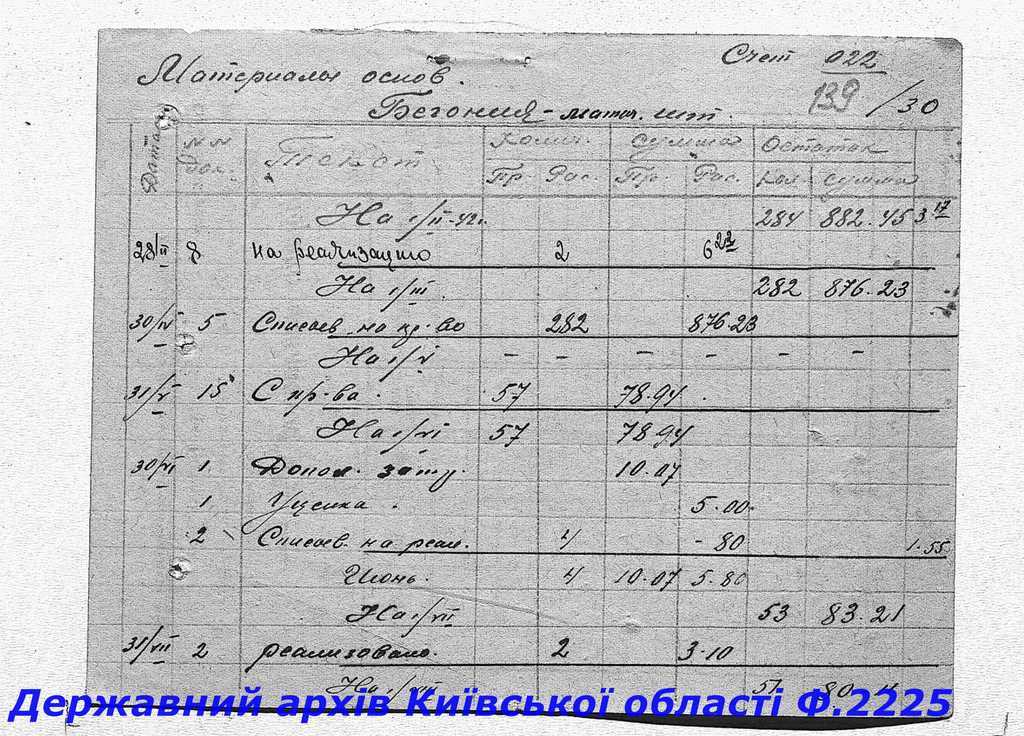 Счет 022
Материалы основ.
139 /30
Бегония - маточ. шт.
Дата NN док. Текст Колич. Сумма Остаток
Пр. Рас. Пр. Рас. Кол. Сумма
На 1/II-42г. 284 882.45 3 17
28/II 8 на реализацию 2 6 22
На 1/III. 282 876.23
30/IV 5 Списыв. на пр-во 282 876.23
На 1/V - - - - - -
31/V 15 С пр-ва. 57 78.94
На 1/VI 57 78.94
30/VI 1 Допол. зату. 10.07
1 Уценка. 5.00
2 Списыв. на реал. 4 - 80 1.55
Июнь. 4 10.07 5.80
На 1/VII 53 83.21
31/VII 2 реализовано. 2 3-10
На 51 80
Державний архів Київської області Ф.2225